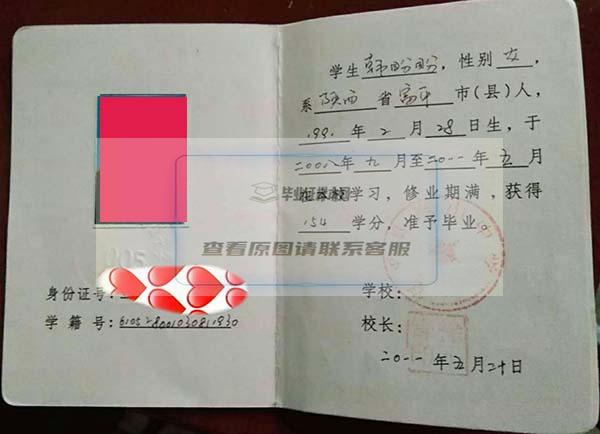 身份证号:
学 籍 号: 6105280010308119930
学生韩盼盼,性别女,
系陕西省富平市(县)人,
1991年2月28日生,于
二00八年九月至二0一一年五月
在本校学习,修业期满,获得
154学分,准予毕业。
查看原图请联系客服
学校:
校长:
二0一一年五月二十日